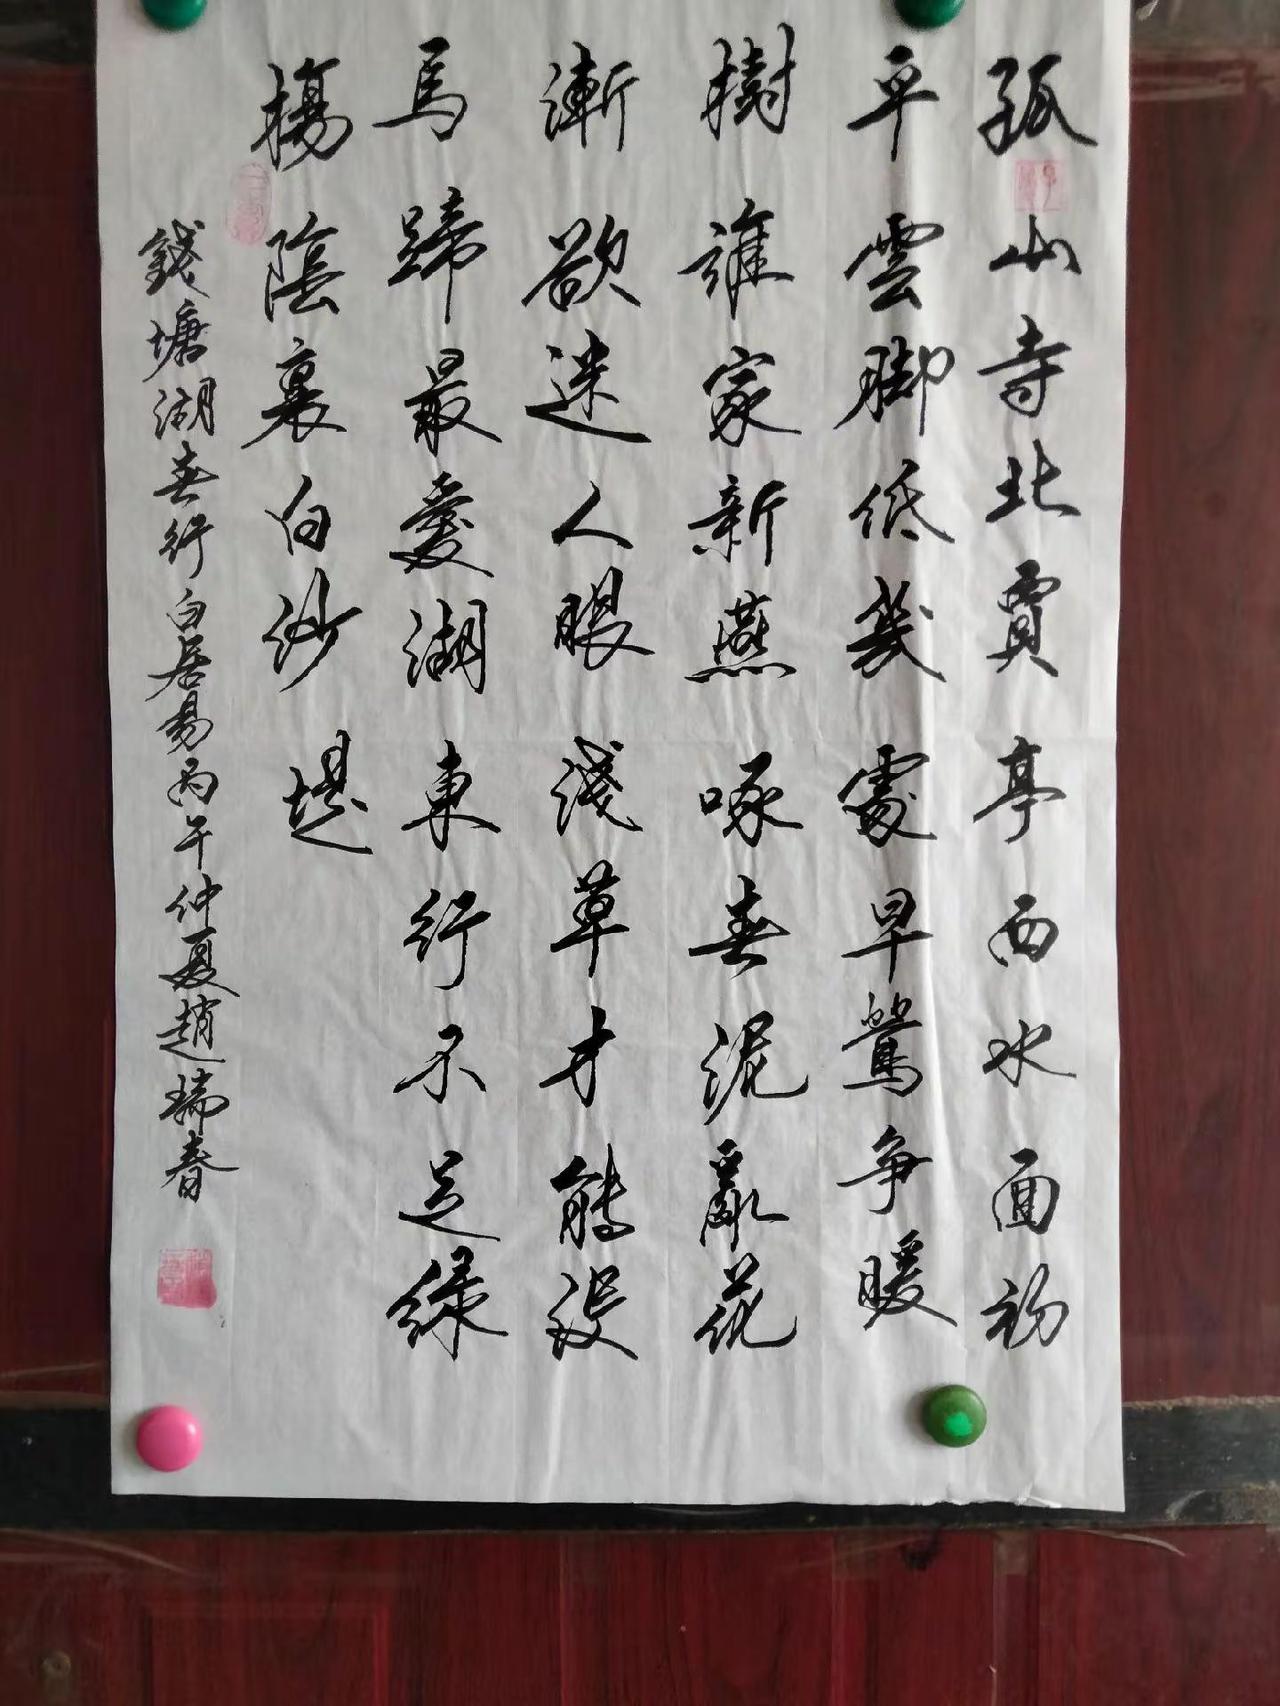 孤山寺北賈亭西水面初
平雲脚低幾處早鶯争暖
樹誰家新燕啄春泥亂花
漸欲迷人眼淺草才能没
馬蹄最愛湖東行不足緑
楊陰裏白沙堤
錢塘湖春行白居易丙午仲夏趙瑞春